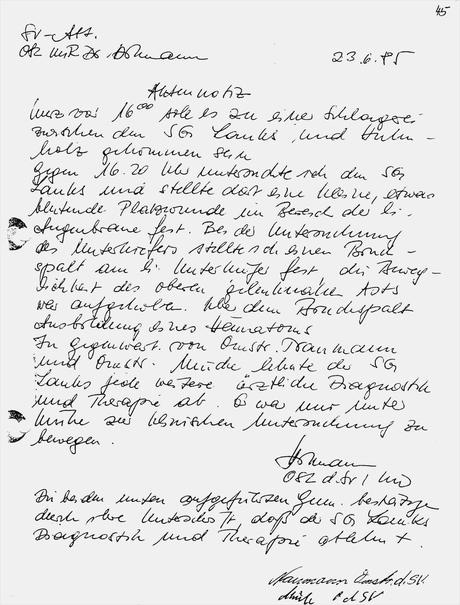 45
Sv-Abt.
OSL MR Dr Hohmann 23.6.85
Aktennotiz
Kurz vor 16⁰⁰ soll es zu einer Schlägerei
zwischen dem SG Lauks und Helm-
holz gekommen sein
Gegen 16.20 Uhr untersuchte ich den SG
Lauks und stellte dort eine kleine, etwas
blutende Platzwunde im Bereich der li.
Augenbraue fest. Bei der Untersuchung
des Unterkiefers stellte ich einen Bruch-
spalt am li Unterkiefer fest, die Beweg-
lichkeit des oberen gelenknahen Asts
war aufgehoben. Über dem Bruchspalt
Ausbildung eines Hämatoms
In Gegenwart von Omstr.
und Omstr. lehnte der SG
Lauks jede weitere ärztliche Diagnostik
und Therapie ab. Er war nur unter
Mühe zur klinischen Untersuchung zu
bewegen.
Hohmann
OSL d. SV
Die beiden unten aufgeführten Gen. bestätigen
durch ihre Unterschrift, daß der SG Lauks
Diagnostik und Therapie ablehnt.
Omstr. d. SV
d SV